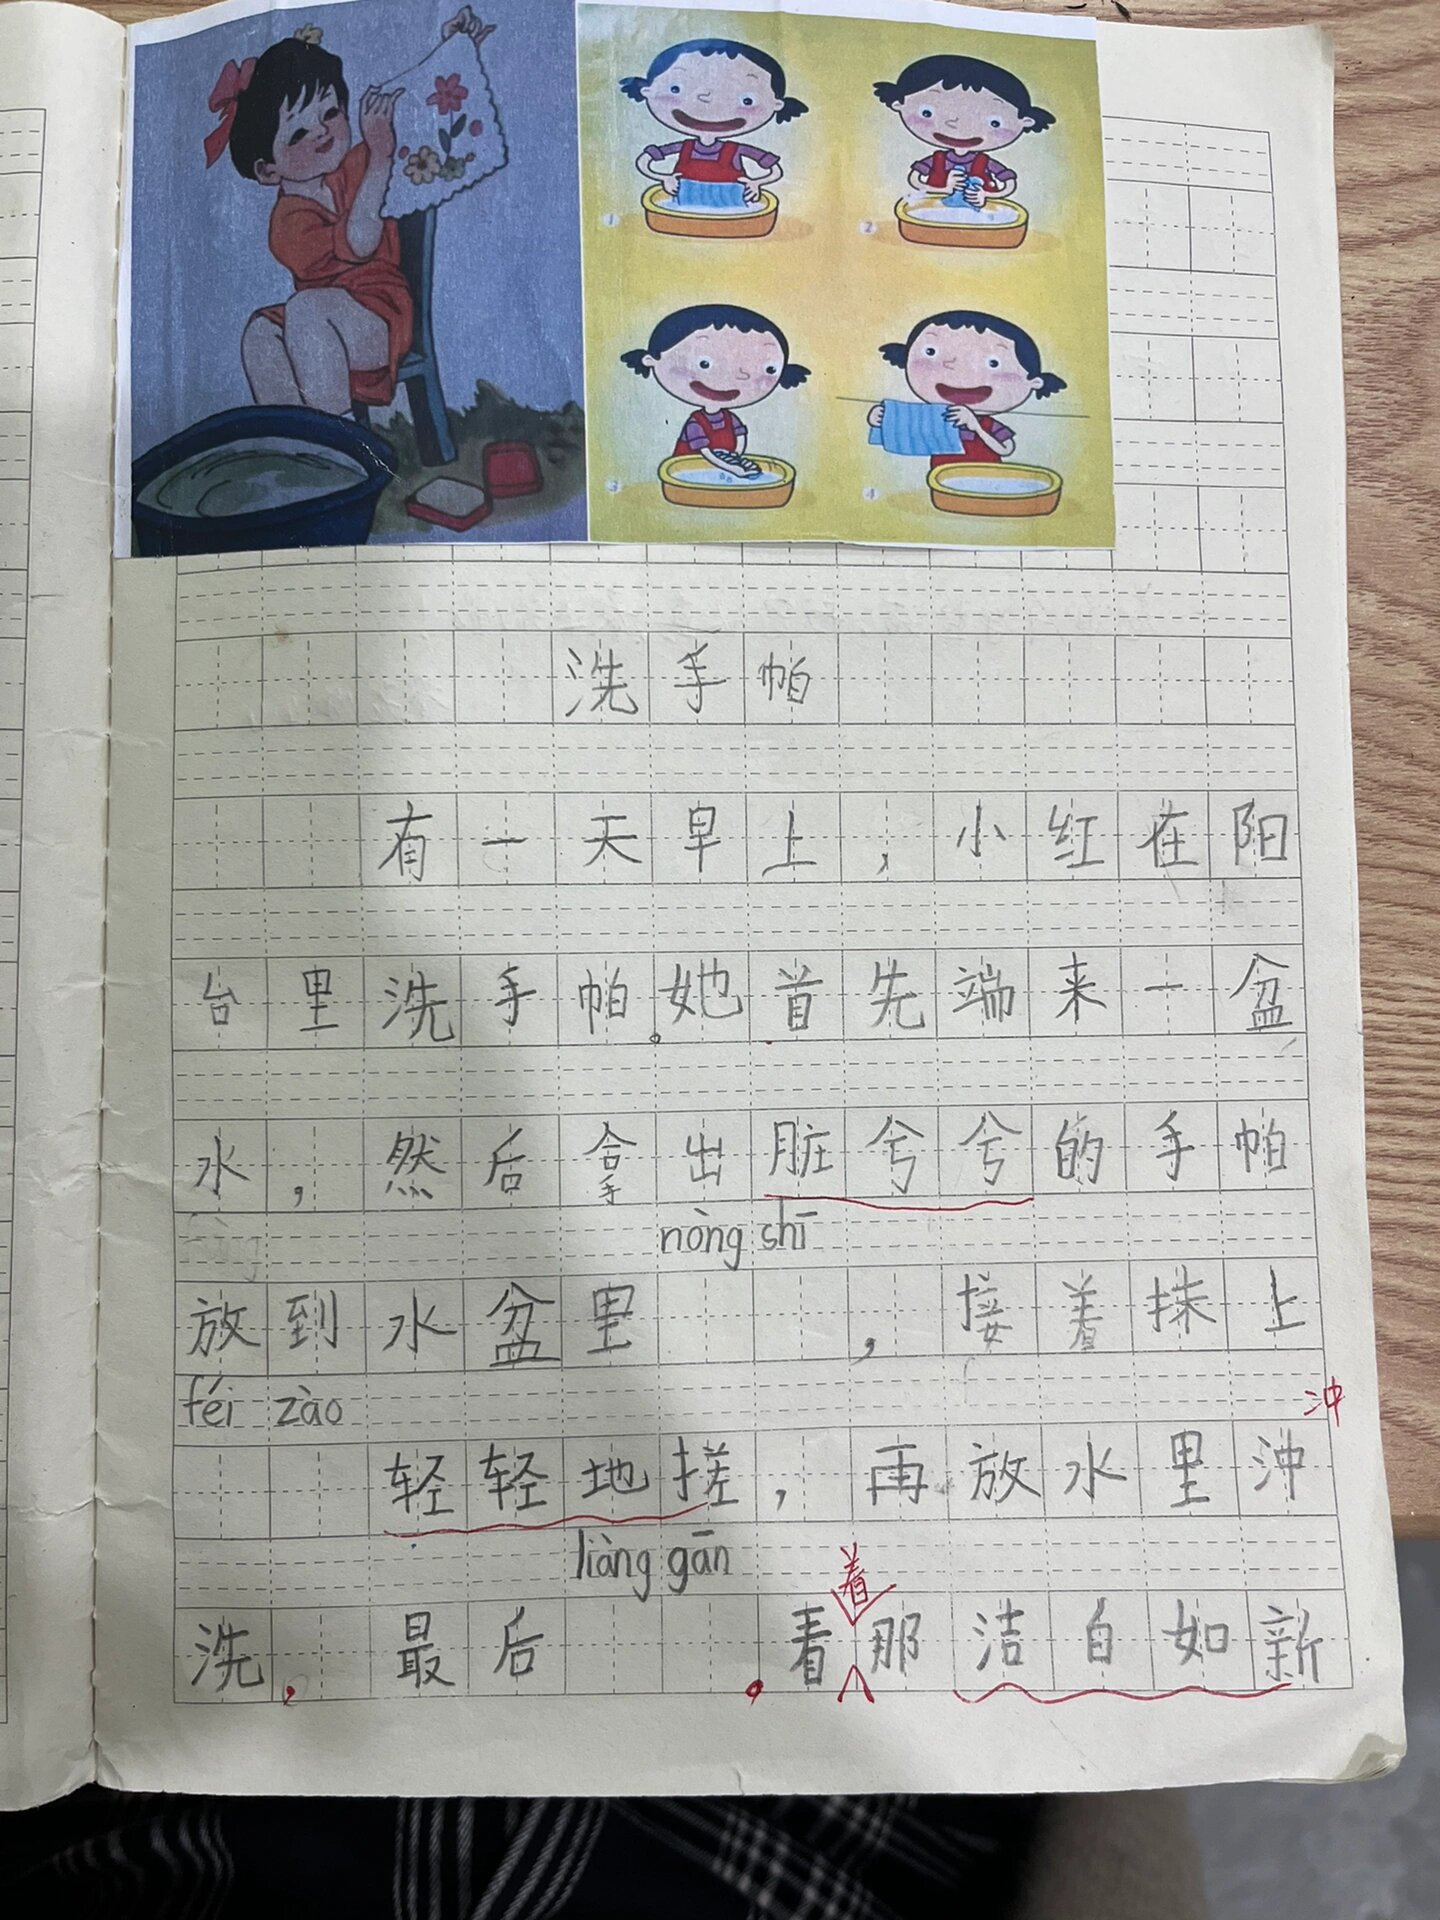 1
2
3
4
洗手帕
有一天早上，小红在阳
台里洗手帕。她首先端来一盆
水，然后拿出脏兮兮的手帕
nòng shī
放到水盆里，接着抹上
féi zào
冲
轻轻地搓，再放水里冲
liàng gān
着
洗，最后。看那洁白如新